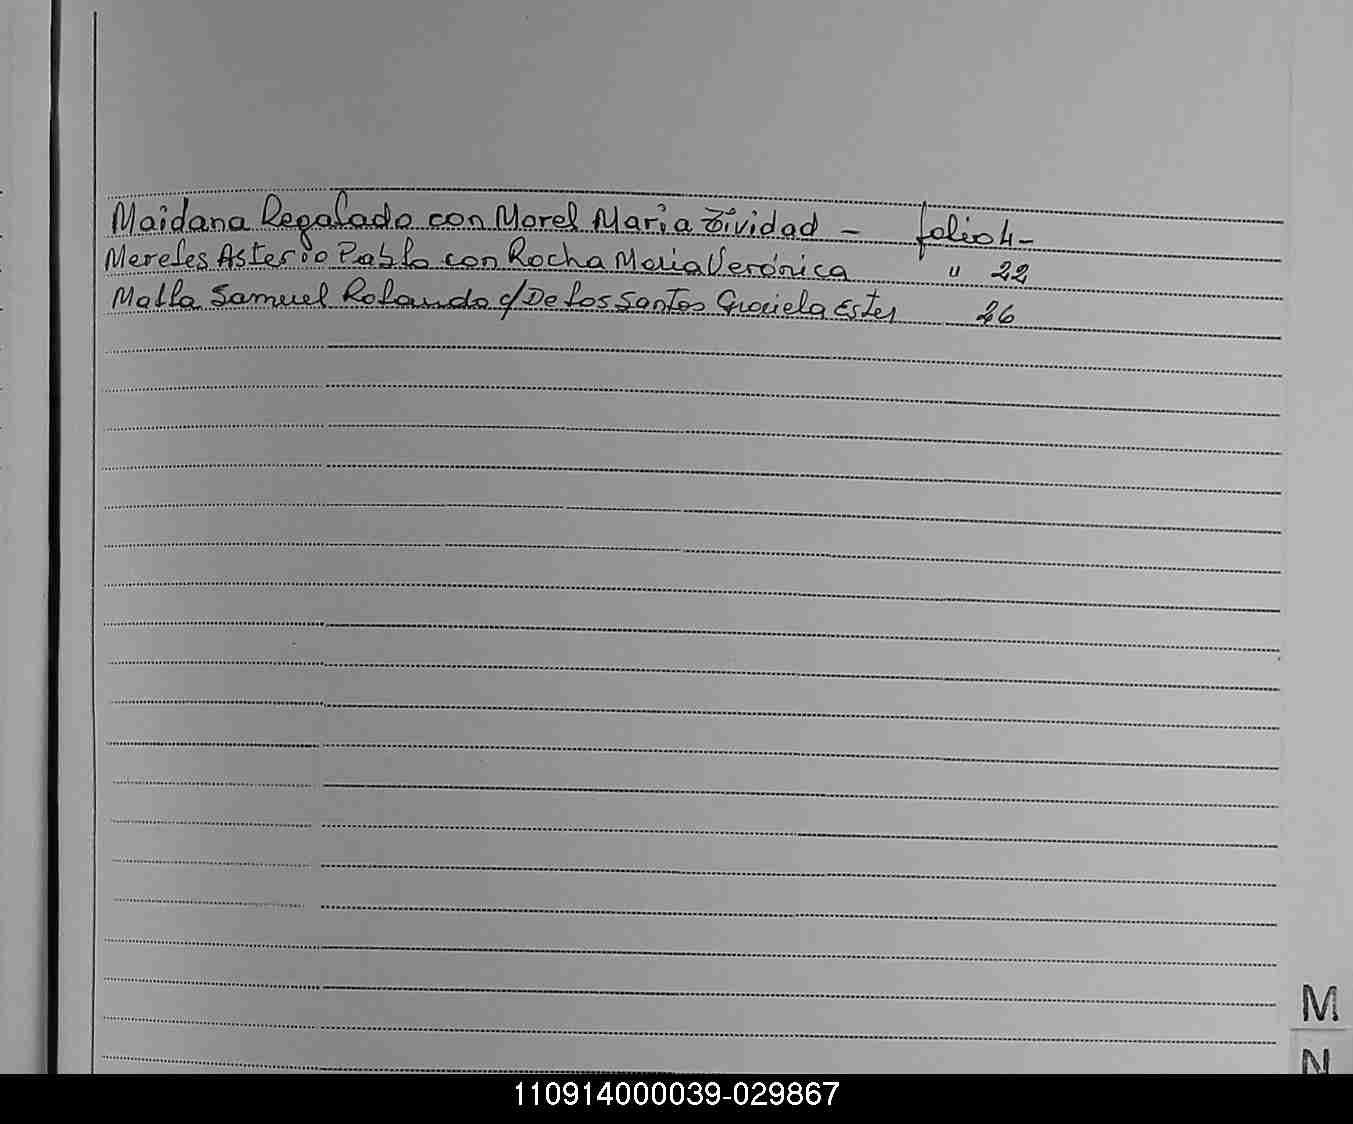 Maidana Regalado con Morel Maria Zividad - folio 4-
Mereles Asterio Pablo con Rocha Maria Verónica " 22
Matta Samuel Rolando c/ De los Santos Graciela Ester 26
M
N
110914000039-029867